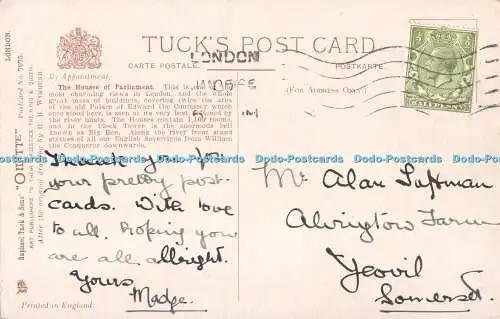 TUCK'S POST CARD
CARTE POSTALE.
POSTKARTE.
(For Address Only)
By Appointment.
LONDON
The Houses of Parliament. This is one of the
most charming views in London, and the whole
great mass of buildings, covering twice the area
of the old Palace of Edward the Confessor which
once stood here, is seen at its very best
river. The Houses contain 1,100 rooms,
and in the Clock Tower is the enormous bell
known as Big Ben. Along the river front stand
statues of all our English Sovereigns from William
the Conqueror downwards.
Raphael Tuck & Sons' "OILETTE" Postcard No. 7975. LONDON.
ART PUBLISHERS TO THEIR MAJESTIES THE KING & QUEEN.
After the original drawing by
Printed in England.
Thank you for
your pretty post-
cards. With love
to all. Hoping you
are all allright.
Yours
Madge.
Mr Alan
Alvington Farm
Yeovil
Somerset.
Dodo-Postcards Dodo-Postcards Dodo-Postcards Dodo-Postcards Dodo-Postcards